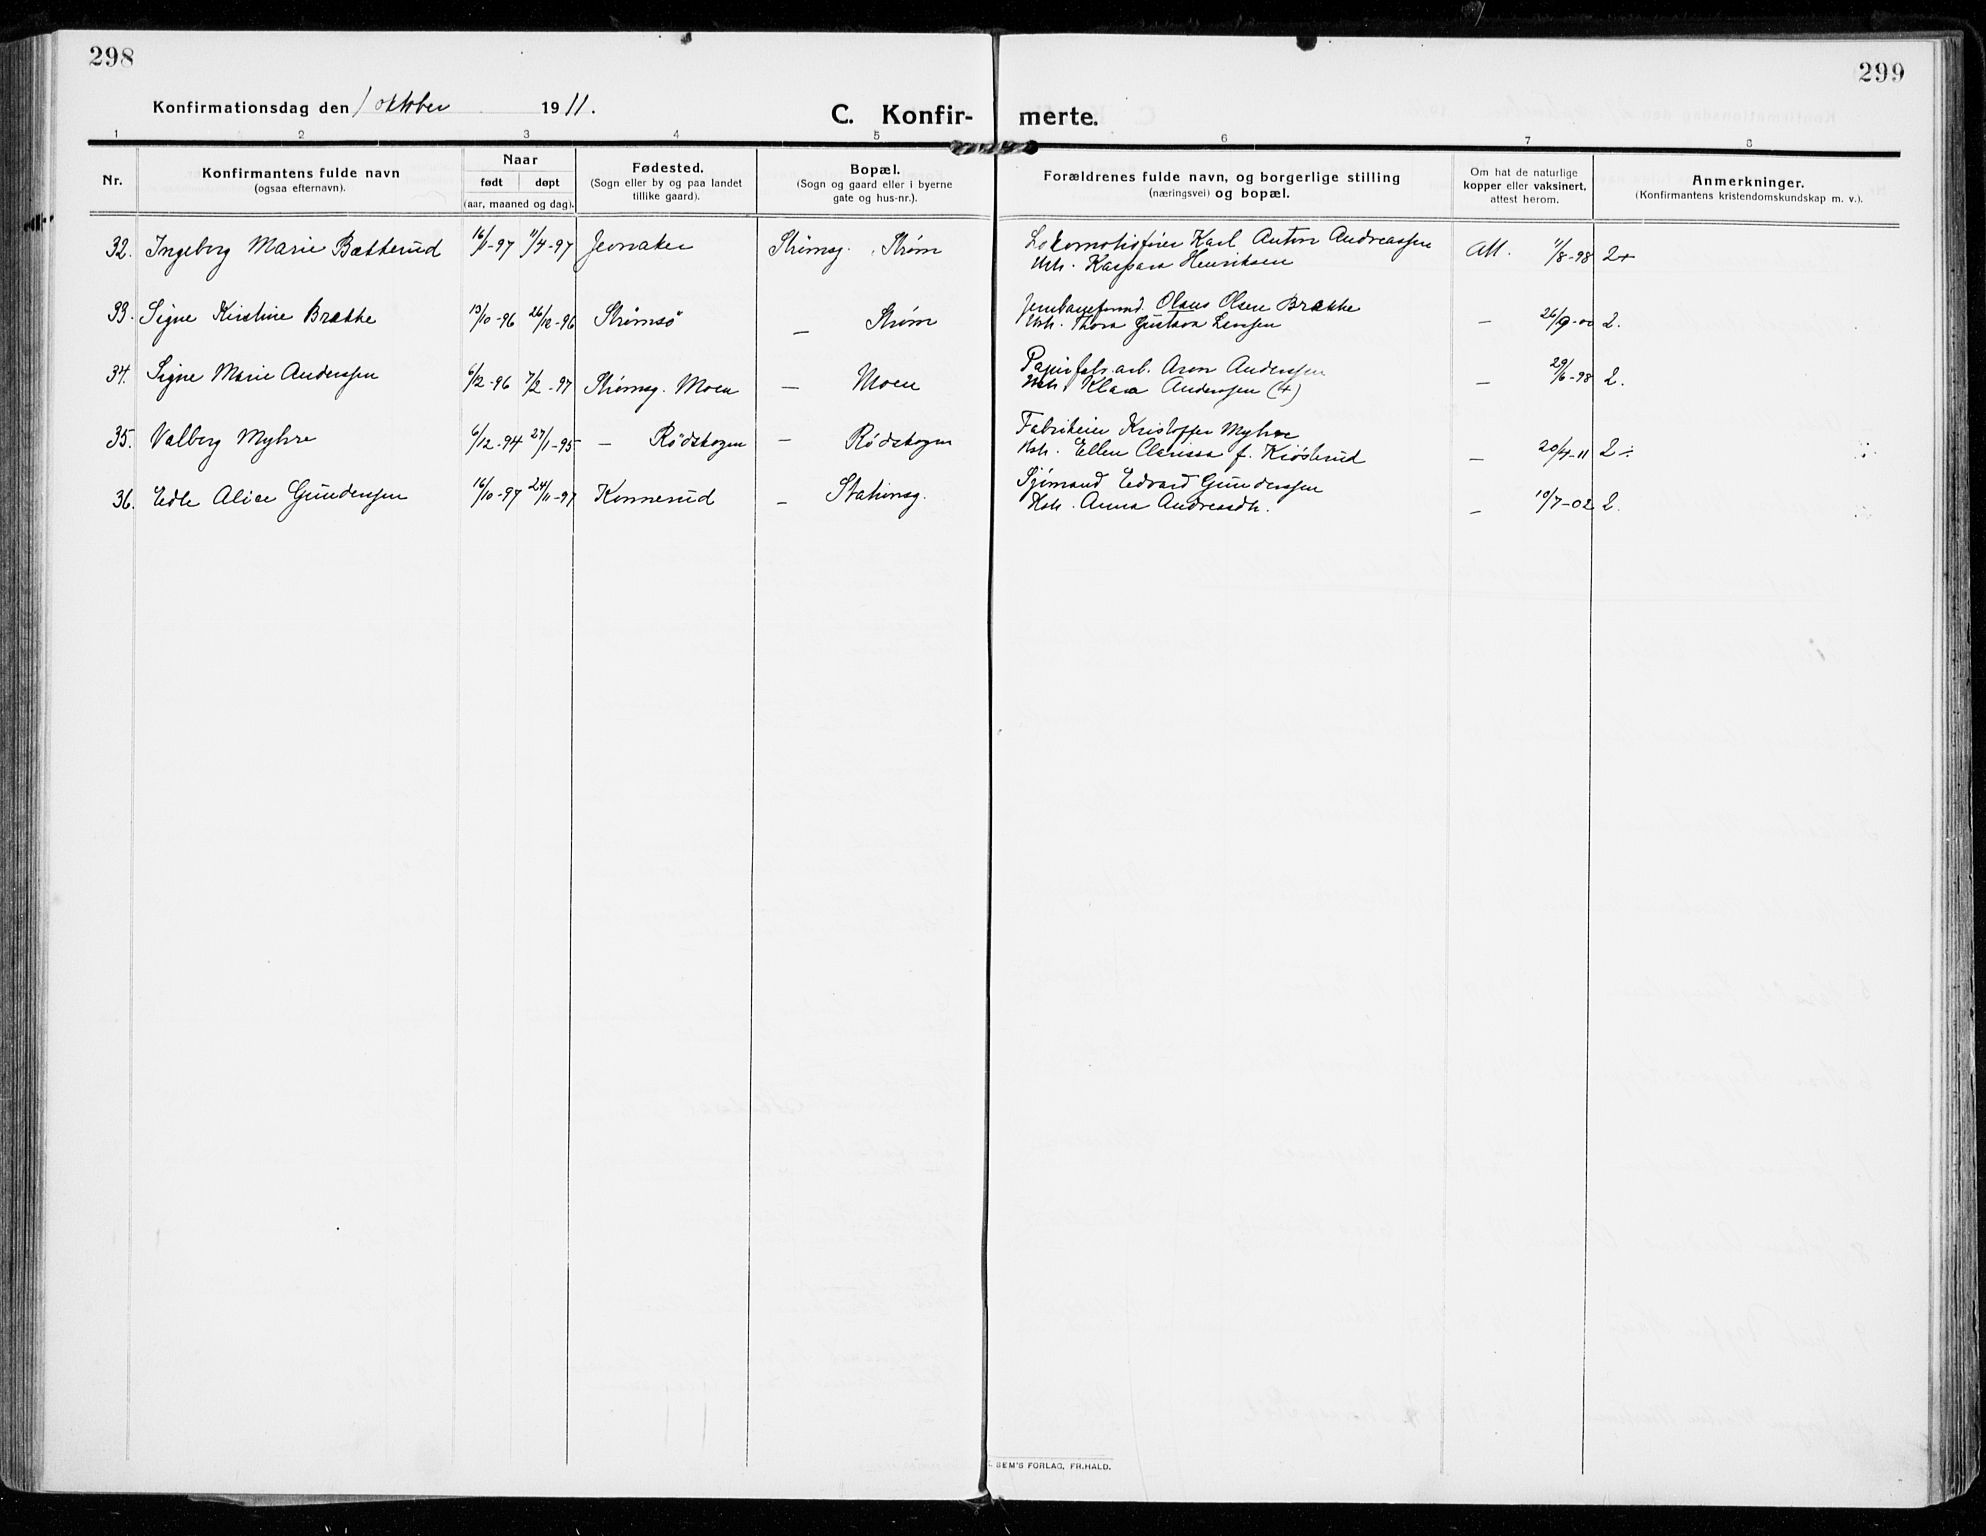 298
299
Konfirmationsdag den 1 oktober 1911.
C. Konfir-
merte.
1 2 3 4 5 6 7 8
Nr.
Konfirmantens fulde navn
(ogsaa efternavn).
Naar
født døpt
(aar, maaned og dag).
Fødested.
(Sogn eller by og paa landet
tillike gaard).
Bopæl.
(Sogn og gaard eller i byerne
gate og hus-nr.).
Forældrenes fulde navn, og borgerlige stilling
(næringsvei) og bopæl.
Om hat de naturlige
kopper eller vaksinert,
attest herom.
Anmerkninger.
(Konfirmantens kristendomskundskap m. v.).
32. Ingeborg Marie Bætterud 16/1-97 11/4-97 Jevnaker Strømsg. Strøm
Lokomotivfører Karl Anton Andreassen
Hstr. Kaspara Henriksen Att. 11/8-98 2+
33. Signe Kristine Brække 13/10-96 26/12-96 Strømsö — Strøm
Jernbaneformd. Olaus Olsen Brække
Hstr. Thora Gustava — 26/9-00 2.
34. Signe Marie Anderssen 6/12-96 7/2-97 Strømsg. Moen — Moen
Papirfabr.arb. Aron Anderssen
Hstr. Klara Anderssen (4) — 29/6-98 2.
35. Valborg Myhre 6/12-94 27/1-95 — Rødskogen — Rødskogen
Fabrikeier Kristoffer Myhre
Hstr. Ellen Clarissa f. Kiøsterud — 20/4-11 2÷
36. Edle Alice Gunderssen 16/10-97 24/11-97 Konnerud — Stationsg.
Sjømand Edvard Gunderssen
Hstr. Anna Andreasdtr. — 10/7-02 2.
SEM'S FORLAG, FR.HALD.